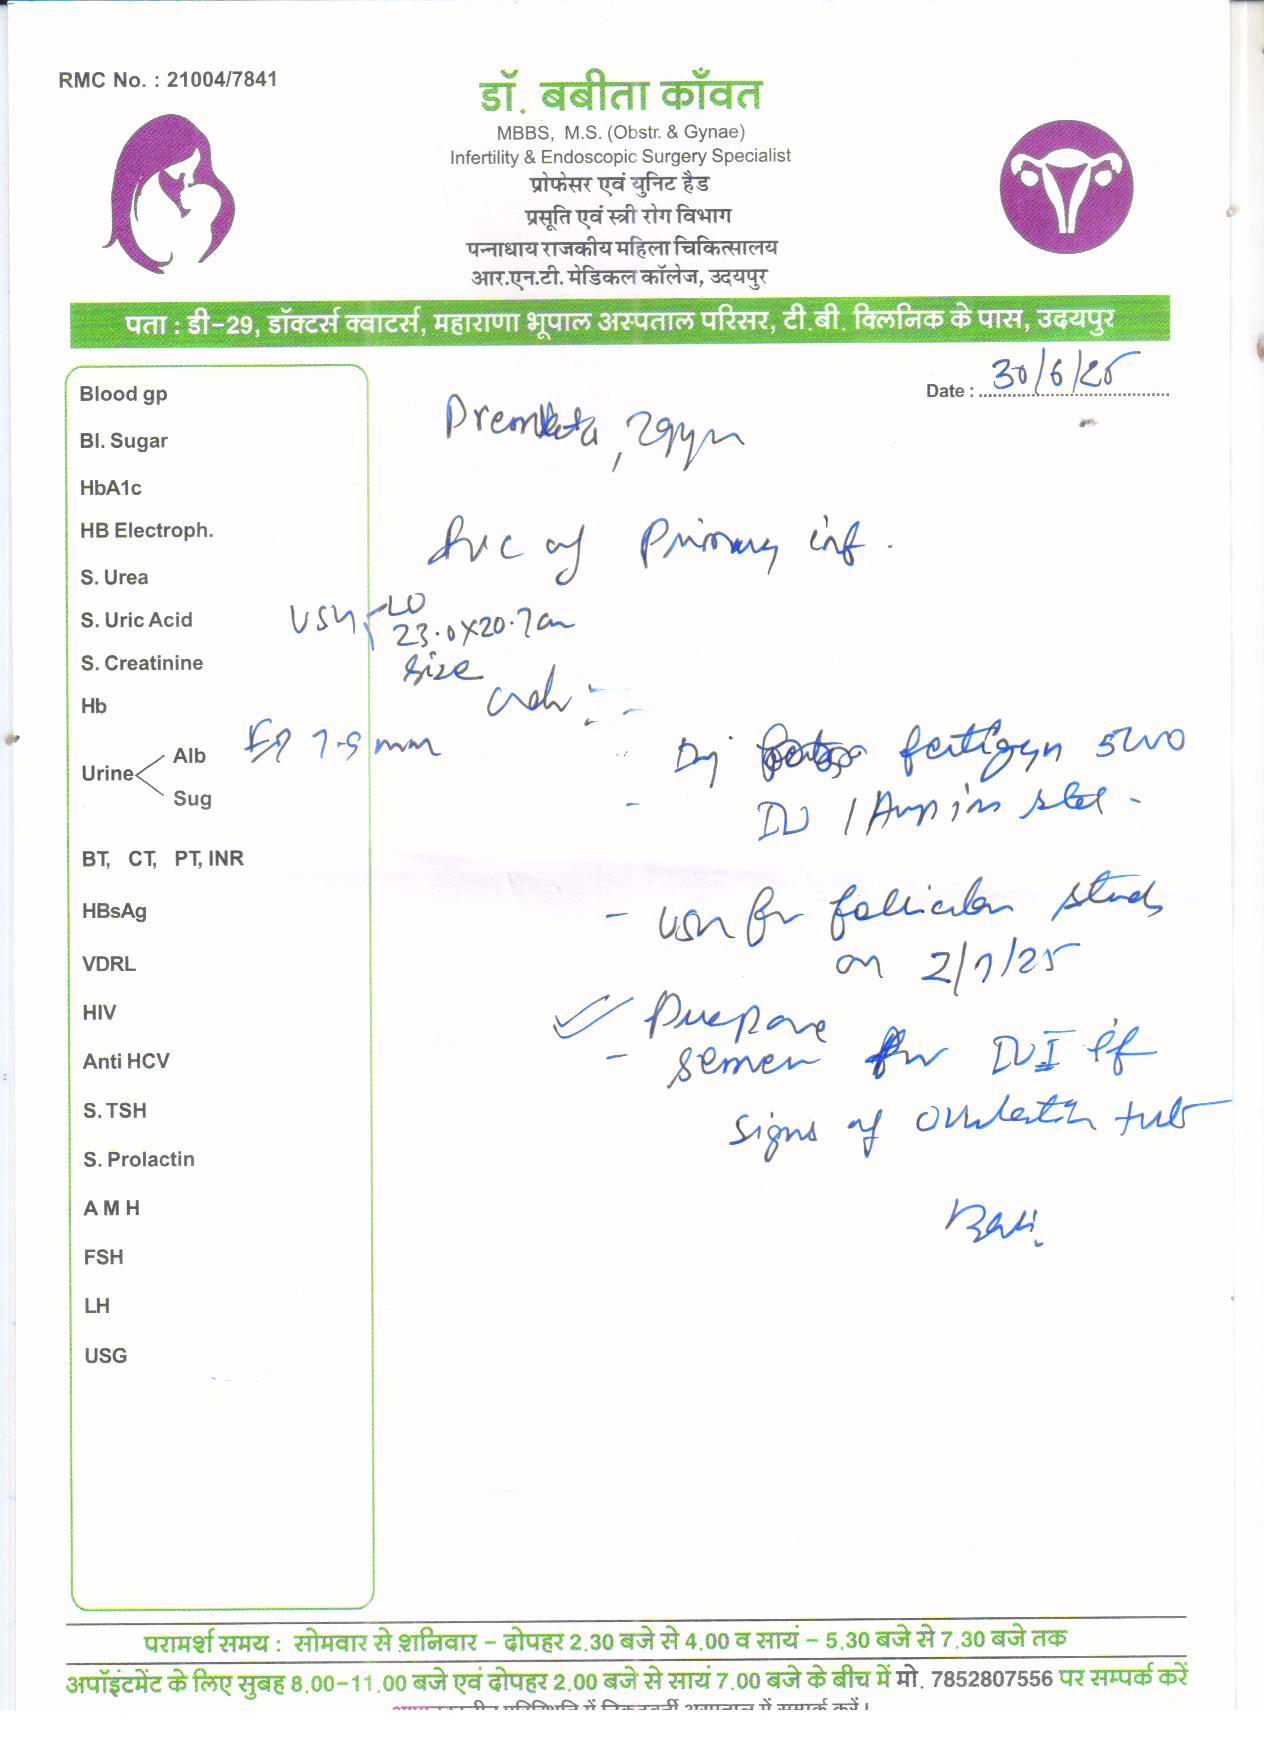 RMC No. : 21004/7841
डॉ. बबीता काँवत
MBBS, M.S. (Obstr. & Gynae)
Infertility & Endoscopic Surgery Specialist
प्रोफेसर एवं युनिट हैड
प्रसूति एवं स्त्री रोग विभाग
पन्नाधाय राजकीय महिला चिकित्सालय
आर.एन.टी. मेडिकल कॉलेज, उदयपुर
पता : डी-29, डॉक्टर्स क्वाटर्स, महाराणा भूपाल अस्पताल परिसर, टी.बी. क्लिनिक के पास, उदयपुर
Date : 30/6/25
Blood gp
Bl. Sugar
HbA1c
HB Electroph.
S. Urea
S. Uric Acid
S. Creatinine
Hb
Urine
Alb
Sug
BT, CT, PT, INR
HBsAg
VDRL
HIV
Anti HCV
S. TSH
S. Prolactin
A M H
FSH
LH
USG
29yrs
of Primary inf.
23.0x20.7
size
7.9 mm
fertigyn 5000
IU 1 Amp im stat -
- USG for follicular study
on 2/7/25
Prepare
- semen for IUI if
signs of ovulation
परामर्श समय : सोमवार से शनिवार - दोपहर 2.30 बजे से 4.00 व सायं - 5.30 बजे से 7.30 बजे तक
अपॉइंटमेंट के लिए सुबह 8.00-11.00 बजे एवं दोपहर 2.00 बजे से सायं 7.00 बजे के बीच में मो. 7852807556 पर सम्पर्क करें